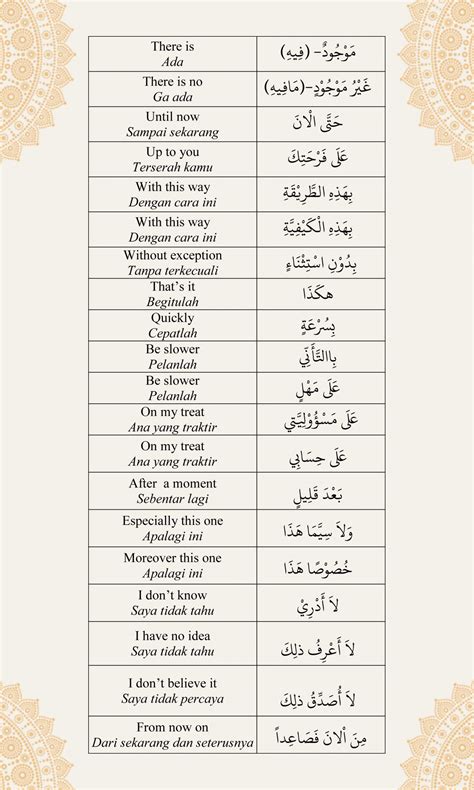 There is
Ada
مَوْجُودٌ- (فِيهِ)
There is no
Ga ada
غَيْرُ مَوْجُوْدٍ-(مَافِيهِ)
Until now
Sampai sekarang
حَتَّى الْانَ
Up to you
Terserah kamu
عَلَى فَرْحَتِكَ
With this way
Dengan cara ini
بِهَذِهِ الطَّرِيْقَةِ
With this way
Dengan cara ini
بِهَذِهِ الْكَيْفِيَّةِ
Without exception
Tanpa terkecuali
بِدُوْنِ اسْتِثْنَاءٍ
That’s it
Begitulah
هكَذَا
Quickly
Cepatlah
بِسُرْعَةٍ
Be slower
Pelanlah
بِاالتَّأَنِّي
Be slower
Pelanlah
عَلَى مَهْلٍ
On my treat
Ana yang traktir
عَلَى مَسْؤُوْلِيَّتِي
On my treat
Ana yang traktir
عَلَى حِسَابِي
After a moment
Sebentar lagi
بَعْدَ قَلِيلٍ
Especially this one
Apalagi ini
وَلاَ سِيَّمَا هَذَا
Moreover this one
Apalagi ini
خُصُوْصًا هَذَا
I don’t know
Saya tidak tahu
لاَ أَدْرِيْ
I have no idea
Saya tidak tahu
لاَ أَعْرِفُ ذلِكَ
I don’t believe it
Saya tidak percaya
لاَ أُصَدِّقُ ذلِكَ
From now on
Dari sekarang dan seterusnya
مِنَ اْلانَ فَصَاعِداً